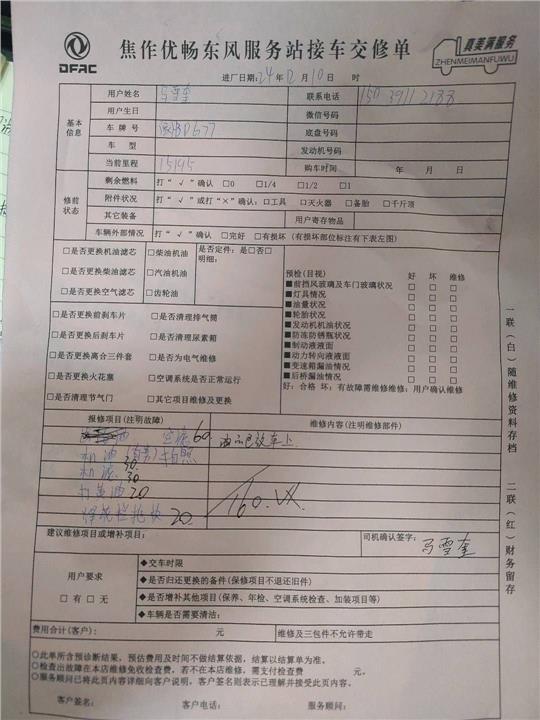 DFAC
焦作优畅东风服务站接车交修单
真美满服务
ZHENMEIMANFUWU
进厂日期:24年12月10日 时
基本信息
用户姓名 马雪奎 联系电话
用户生日 微信号码
车牌号 底盘号码
车型 发动机号码
当前里程 15145 购车时间 年 月 日
修前状态
剩余燃料 打“√”确认 □0 □1/4 □1/2 □1
附件状况 打“√”或打“×”确认:□工具 □灭火器 □备胎 □千斤顶
其它装备 用户寄存物品
车辆外部情况 打“√”确认 □完好 □有损坏(有损坏部位标注有下表左图)
□是否更换机油滤芯 □柴油机油 是否定件:是□否□
□是否更换柴油滤芯 □汽油机油 明细:
□是否更换空气滤芯 □齿轮油
□是否更换前刹车片 □是否清理排气筒
□是否更换后刹车片 □是否清理尿素箱
□是否更换离合三件套 □是否为电气维修
□是否更换火花塞 □空调系统是否正常运行
□是否清理节气门 □其它项目维修及更换
预检(目视) 好 坏 维修
■前挡风玻璃及车门玻璃状况 □ □ □
■灯具情况 □ □ □
■油量状况 □ □ □
■轮胎状况 □ □ □
■发动机机油状况 □ □ □
■防冻防锈瓶状况 □ □ □
■制动液液面 □ □ □
■动力转向液液面 □ □ □
■变速箱漏油情况 □ □ □
■后桥漏油情况 □ □ □
好:合格 坏:有故障需维修维修:用户确认维修
报修项目(注明故障) 维修内容(注明维修部件)
空滤60
机油(自带)拍照
机滤30
30
打黄油20
20
160.
建议维修项目或增补项目: 司机确认签字: 马雪奎
用户要求
□有 □无
◆交车时限
◆是否归还更换的备件(保修项目不退还旧件)
◆是否增补其他项目(保养、年检、空调系统检查、加装项目等)
◆车辆是否需要清洁:
费用合计(客户): 元 维修及三包件不允许带走
○此单所含预诊断结果,预估费用及时间不做结算依据,结算以结算单为准。
○检查出故障在本店维修免收检查费,若不在本店维修,需支付检查费 元。
○服务顾问已将此页内容详细向客户说明,客户签名则表示已理解并接受此页内容。
客户签名: 客户电话: 服务顾问:
一联(白)随维修资料存档
二联(红)财务留存